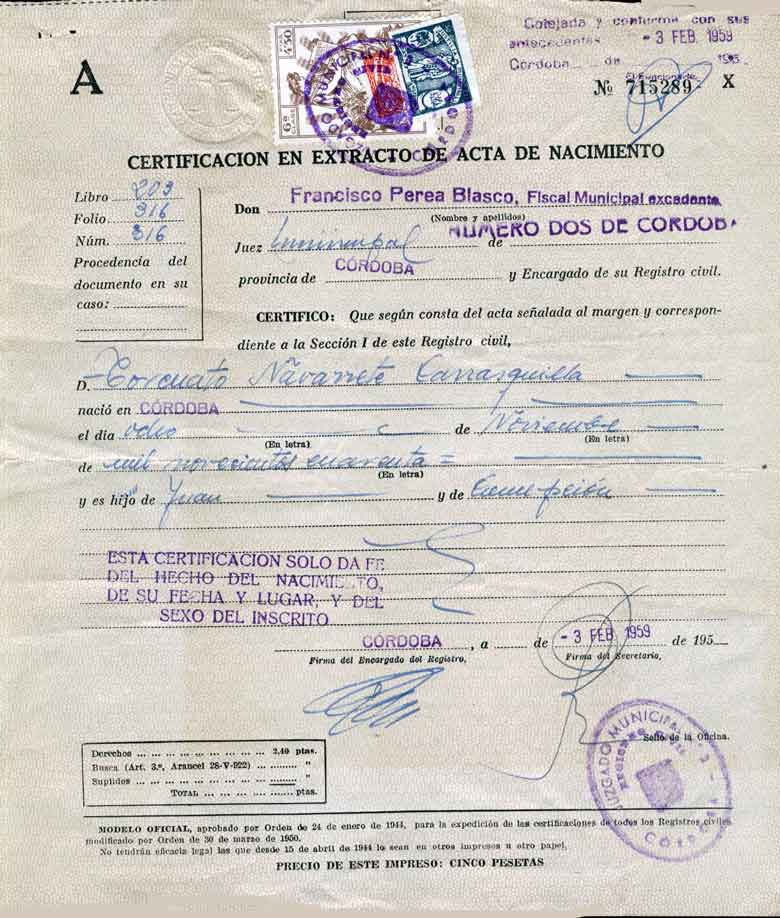 Cotejada y conforme con sus
antecedentes - 3 FEB. 1959
Córdoba de 195
El Funcionario
A
Nº 715289 X
4'50
6ª CLASE
CERTIFICACION EN EXTRACTO DE ACTA DE NACIMIENTO
Libro 203
Folio 316
Núm. 316
Procedencia del
documento en su
caso:
Don Francisco Perea Blasco, Fiscal Municipal excedente
(Nombre y apellidos)
Juez municipal de NUMERO DOS DE CORDOBA
provincia de CÓRDOBA y Encargado de su Registro civil.
CERTIFICO: Que según consta del acta señalada al margen y correspon-
diente a la Sección I de este Registro civil,
D. Torcuato Navarrete Carrasquilla
nació en CÓRDOBA
el día ocho de Noviembre
(En letra) (En letra)
de mil novecientos cuarenta =
(En letra)
y es hijo de Juan y de Concepción
ESTA CERTIFICACION SOLO DA FE
DEL HECHO DEL NACIMIENTO,
DE SU FECHA Y LUGAR, Y DEL
SEXO DEL INSCRITO
CÓRDOBA, a de - 3 FEB 1959 de 195
Firma del Encargado del Registro, Firma del Secretario,
Sello de la Oficina.
JUZGADO MUNICIPAL - 2 - CÓRDOBA
REGISTRO CIVIL
Derechos ... 2,40 ptas.
Busca (Art. 3.º, Arancel 28-V-922) ... "
Suplidos ... "
TOTAL ... ptas.
MODELO OFICIAL, aprobado por Orden de 24 de enero de 1944, para la expedición de las certificaciones de todos los Registros civiles
modificado por Orden de 30 de marzo de 1950.
No tendrán eficacia legal las que desde 15 de abril de 1944 lo sean en otros impresos u otro papel.
PRECIO DE ESTE IMPRESO: CINCO PESETAS